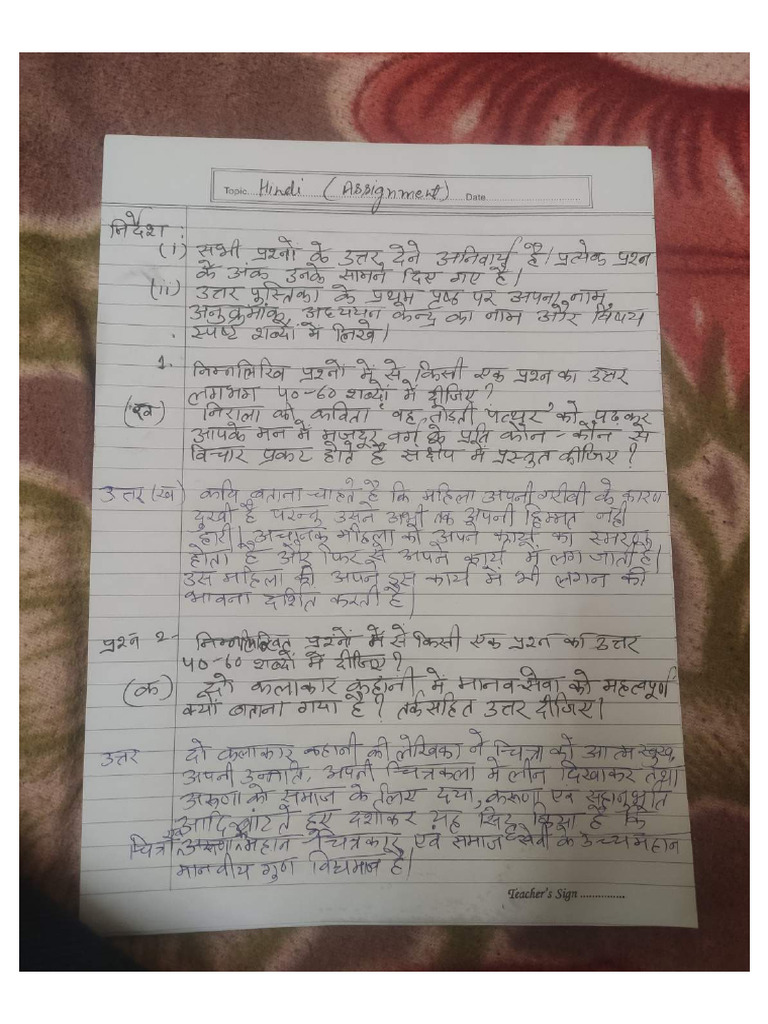 Topic Hindi (Assignment) Date
निर्देश :
(i) सभी प्रश्नों के उत्तर देने अनिवार्य है। प्रत्येक प्रश्न
के अंक उनके सामने दिए गए है।
(ii) उत्तर पुस्तिका के प्रथम प्रष्ठ पर अपना नाम,
अनुक्रमांक, अध्ययन केन्द्र का नाम और विषय
स्पष्ट शब्दों में लिखे।
1. निम्नलिखि प्रश्नों में से किसी एक प्रश्न का उत्तर
लगभग ५०-६० शब्दों में दीजिए?
(ख) निराला की कविता 'वह तोड़ती पत्थर' को पढ़कर
आपके मन में मजदूर वर्ग के प्रति कौन-कौन से
विचार प्रकट होते है संक्षेप में प्रस्तुत कीजिए?
उत्तर (ख) कवि बताना चाहते है कि महिला अपनी गरीबी के कारण
दुखी है परन्तु उसने अभी तक अपनी हिम्मत नही
हारी। अचानक महिला को अपने कार्य का स्मरण
होता है और फिर से अपने कार्य में लग जाती है।
उस महिला की अपने इस कार्य में भी लगन की
भावना दर्शित करती है।
प्रश्न 2- निम्नलिखित प्रश्नों में से किसी एक प्रश्न का उत्तर
५०-६० शब्दों में दीजिए?
(क) दो कलाकार कहानी में मानव-सेवा को महत्वपूर्ण
क्यों बताना गया है? तर्क सहित उत्तर दीजिए।
उत्तर दो कलाकार कहानी की लेखिका ने चित्रा को आत्मसुख,
अपनी उन्नति, अपनी चित्रकला में लीन दिखाकर तथा
अरूणा को समाज के लिए दया, करूणा एवं सहानुभूति
आदि बांटते हुए दर्शाकर यह सिद्ध किया है कि
चित्रा एवं अरूणा में महान चित्रकार एवं समाज सेवी के उच्च महान
मानवीय गुण विद्यमान है।
Teacher's Sign